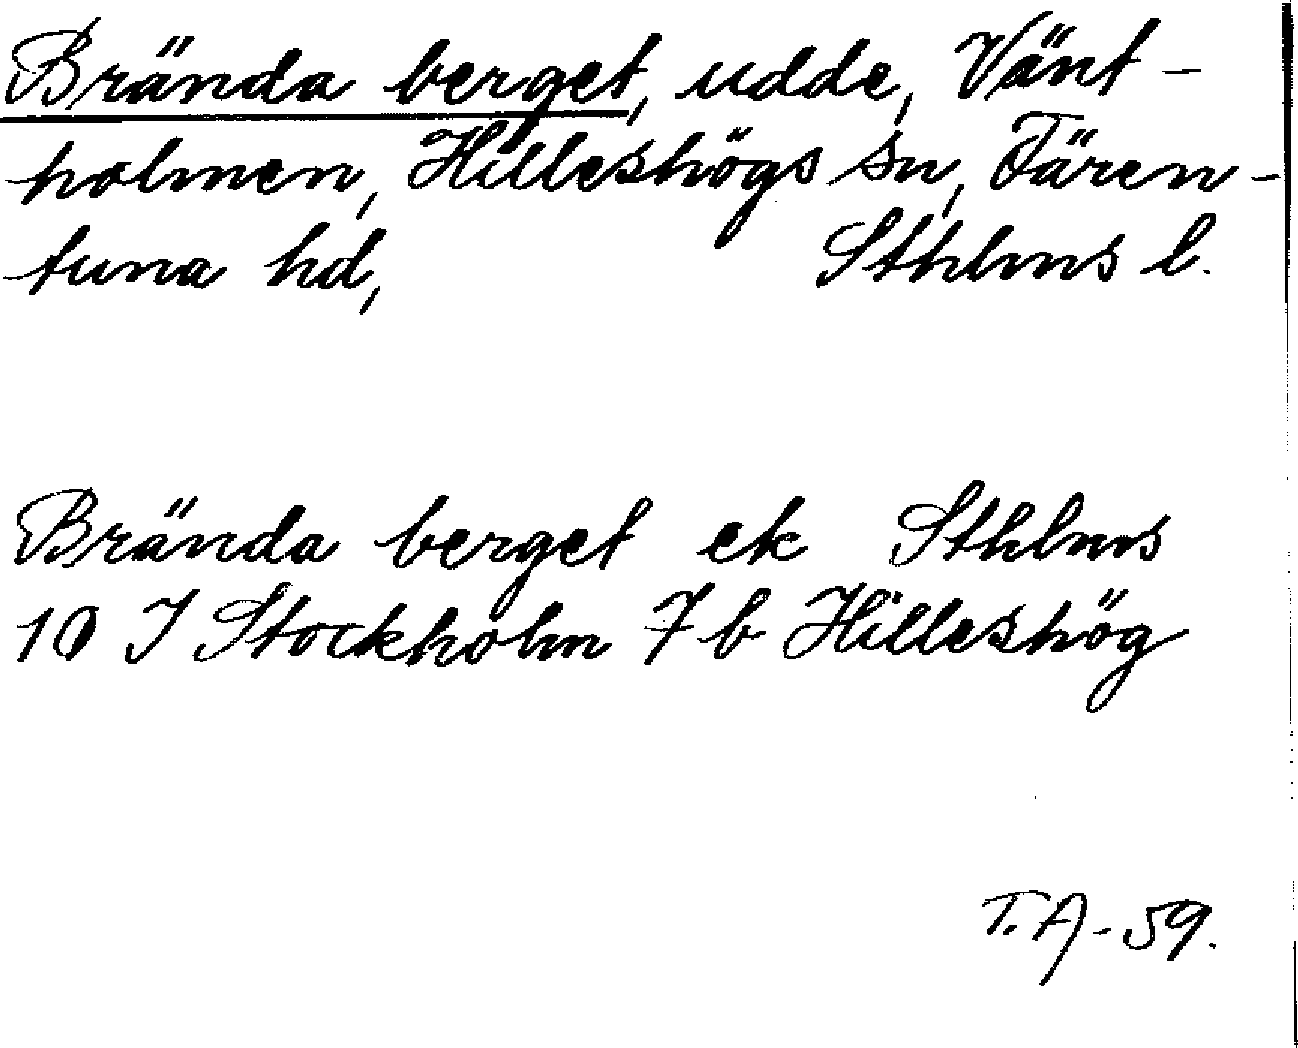 Brända berget, udde, Vänt-
holmen, Hilleshögs sn, Fären-
tuna hd, Sthlms l.
Brända berget ek Sthlms
10 I Stockholm 7 b Hilleshög
T.A-59.